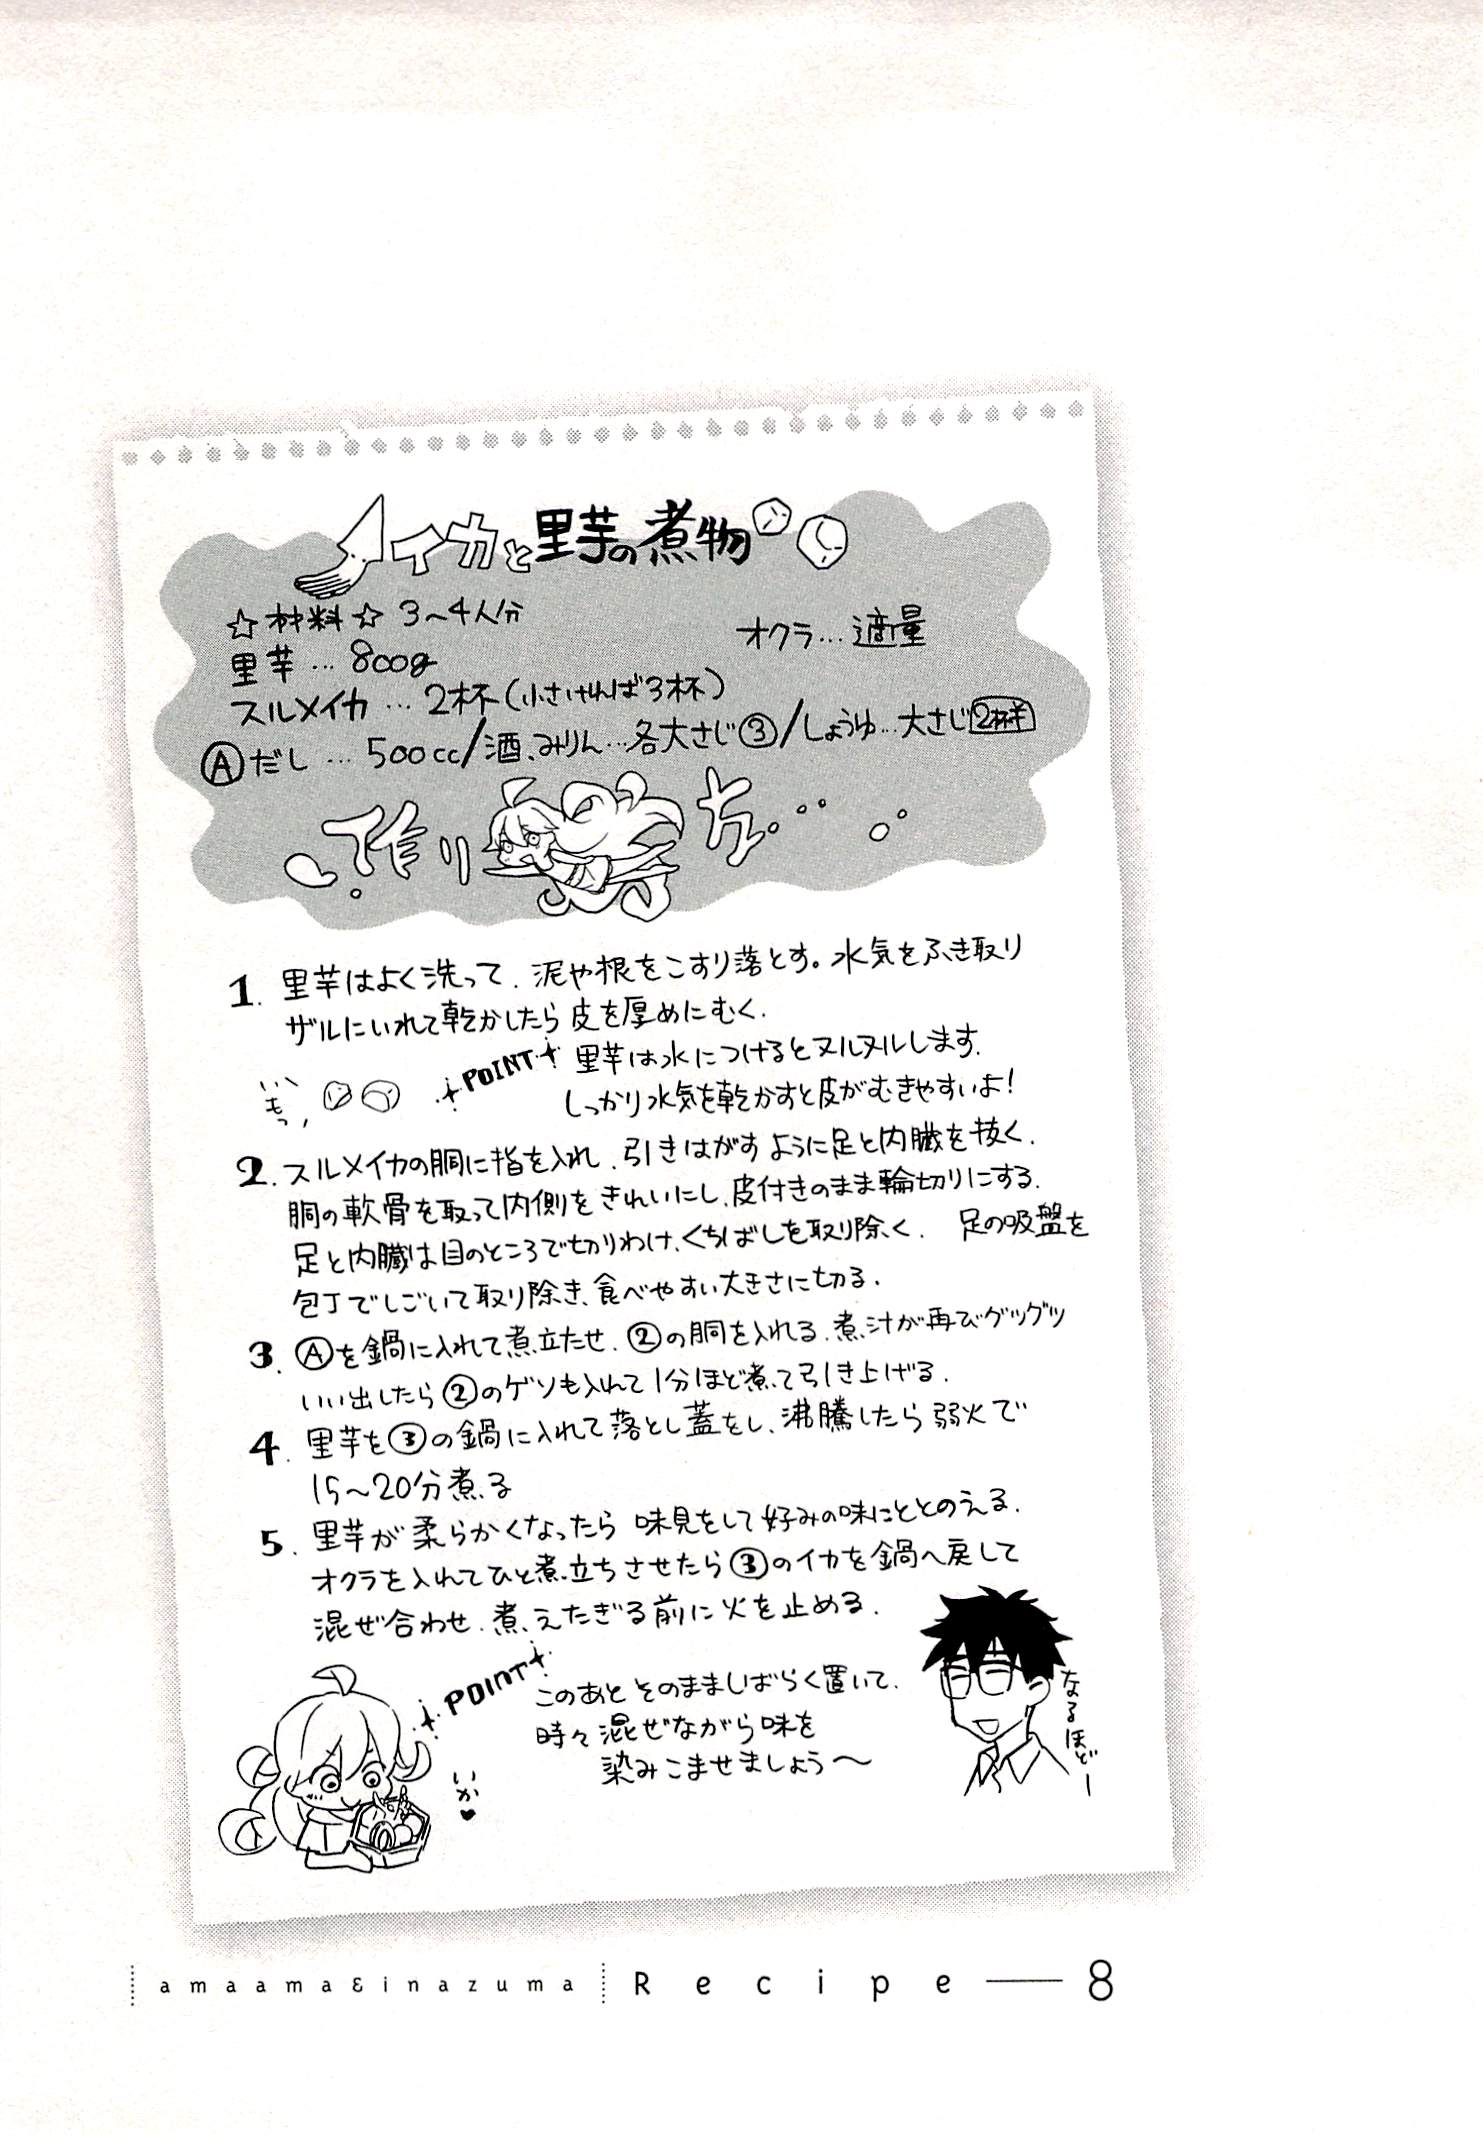 イカと里芋の煮物
☆材料☆ 3〜4人分
里芋…800g
オクラ…適量
スルメイカ…2杯(小さければ3杯)
Ⓐだし…500cc/酒、みりん…各大さじ③/しょうゆ…大さじ2杯半
作り方…
1. 里芋はよく洗って、泥や根をこすり落とす。水気をふき取り
ザルにいれて乾かしたら皮を厚めにむく.
いもっ
POINT 里芋は水につけるとヌルヌルします.
しっかり水気を乾かすと皮がむきやすいよ!
2. スルメイカの胴に指を入れ、引きはがすように足と内臓を抜く.
胴の軟骨を取って内側をきれいにし、皮付きのまま輪切りにする.
足と内臓は目のところで切りわけ、くちばしを取り除く. 足の吸盤を
包丁でしごいて取り除き、食べやすい大きさに切る.
3. Ⓐを鍋に入れて煮立たせ、②の胴を入れる.煮汁が再びグツグツ
いい出したら②のゲソも入れて1分ほど煮て引き上げる.
4. 里芋を③の鍋に入れて落とし蓋をし、沸騰したら弱火で
15〜20分煮る
5. 里芋が柔らかくなったら味見をして好みの味にととのえる.
オクラを入れてひと煮立ちさせたら③のイカを鍋へ戻して
混ぜ合わせ、煮えたぎる前に火を止める.
POINT このあとそのまましばらく置いて、
時々混ぜながら味を
染みこませましょう〜
いか♥
なるほどー
amaama&inazuma Recipe—8